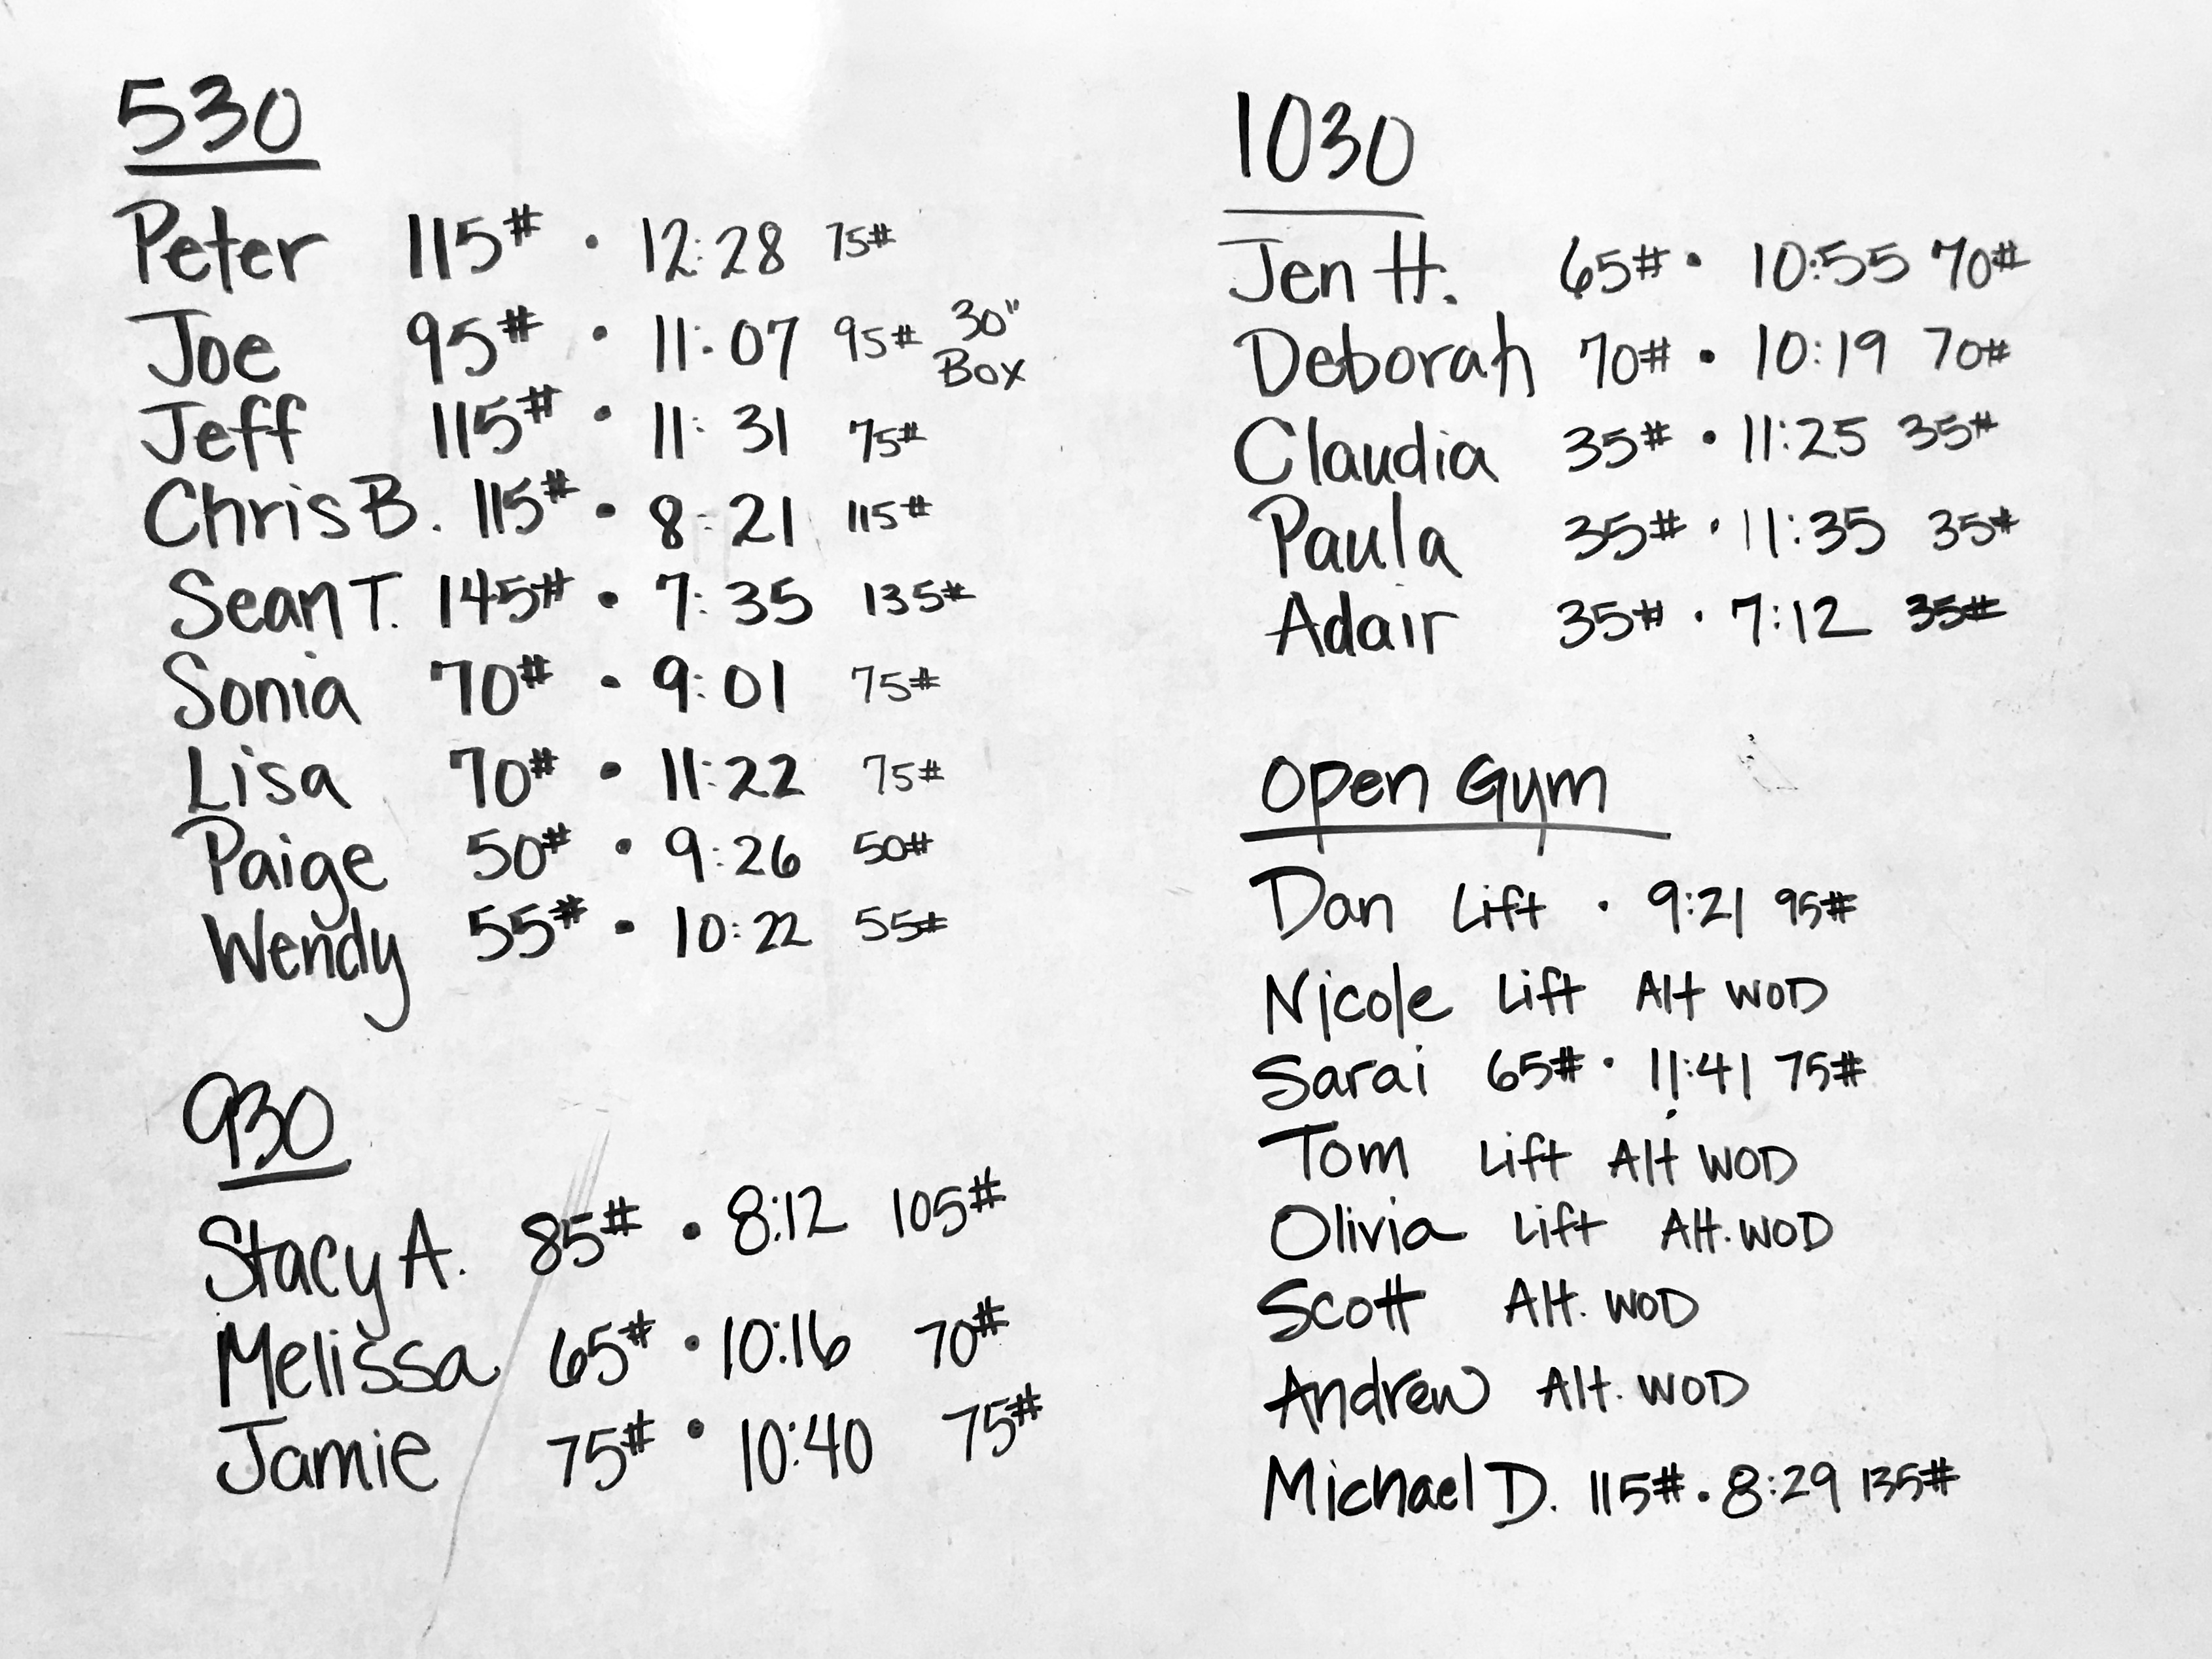 530
Peter 115# · 12:28 75#
Joe 95# · 11:07 95# 30" Box
Jeff 115# · 11:31 75#
Chris B. 115# · 8:21 115#
Sean T. 145# · 7:35 135#
Sonia 70# · 9:01 75#
Lisa 70# · 11:22 75#
Paige 50# · 9:26 50#
Wendy 55# · 10:22 55#
930
Stacy A. 85# · 8:12 105#
Melissa 65# · 10:16 70#
Jamie 75# · 10:40 75#
1030
Jen H. 65# · 10:55 70#
Deborah 70# · 10:19 70#
Claudia 35# · 11:25 35#
Paula 35# · 11:35 35#
Adair 35# · 7:12 35#
Open Gym
Dan Lift · 9:21 95#
Nicole Lift Alt WOD
Sarai 65# · 11:41 75#
Tom Lift Alt WOD
Olivia Lift Alt. WOD
Scott Alt. WOD
Andrew Alt. WOD
Michael D. 115# · 8:29 135#